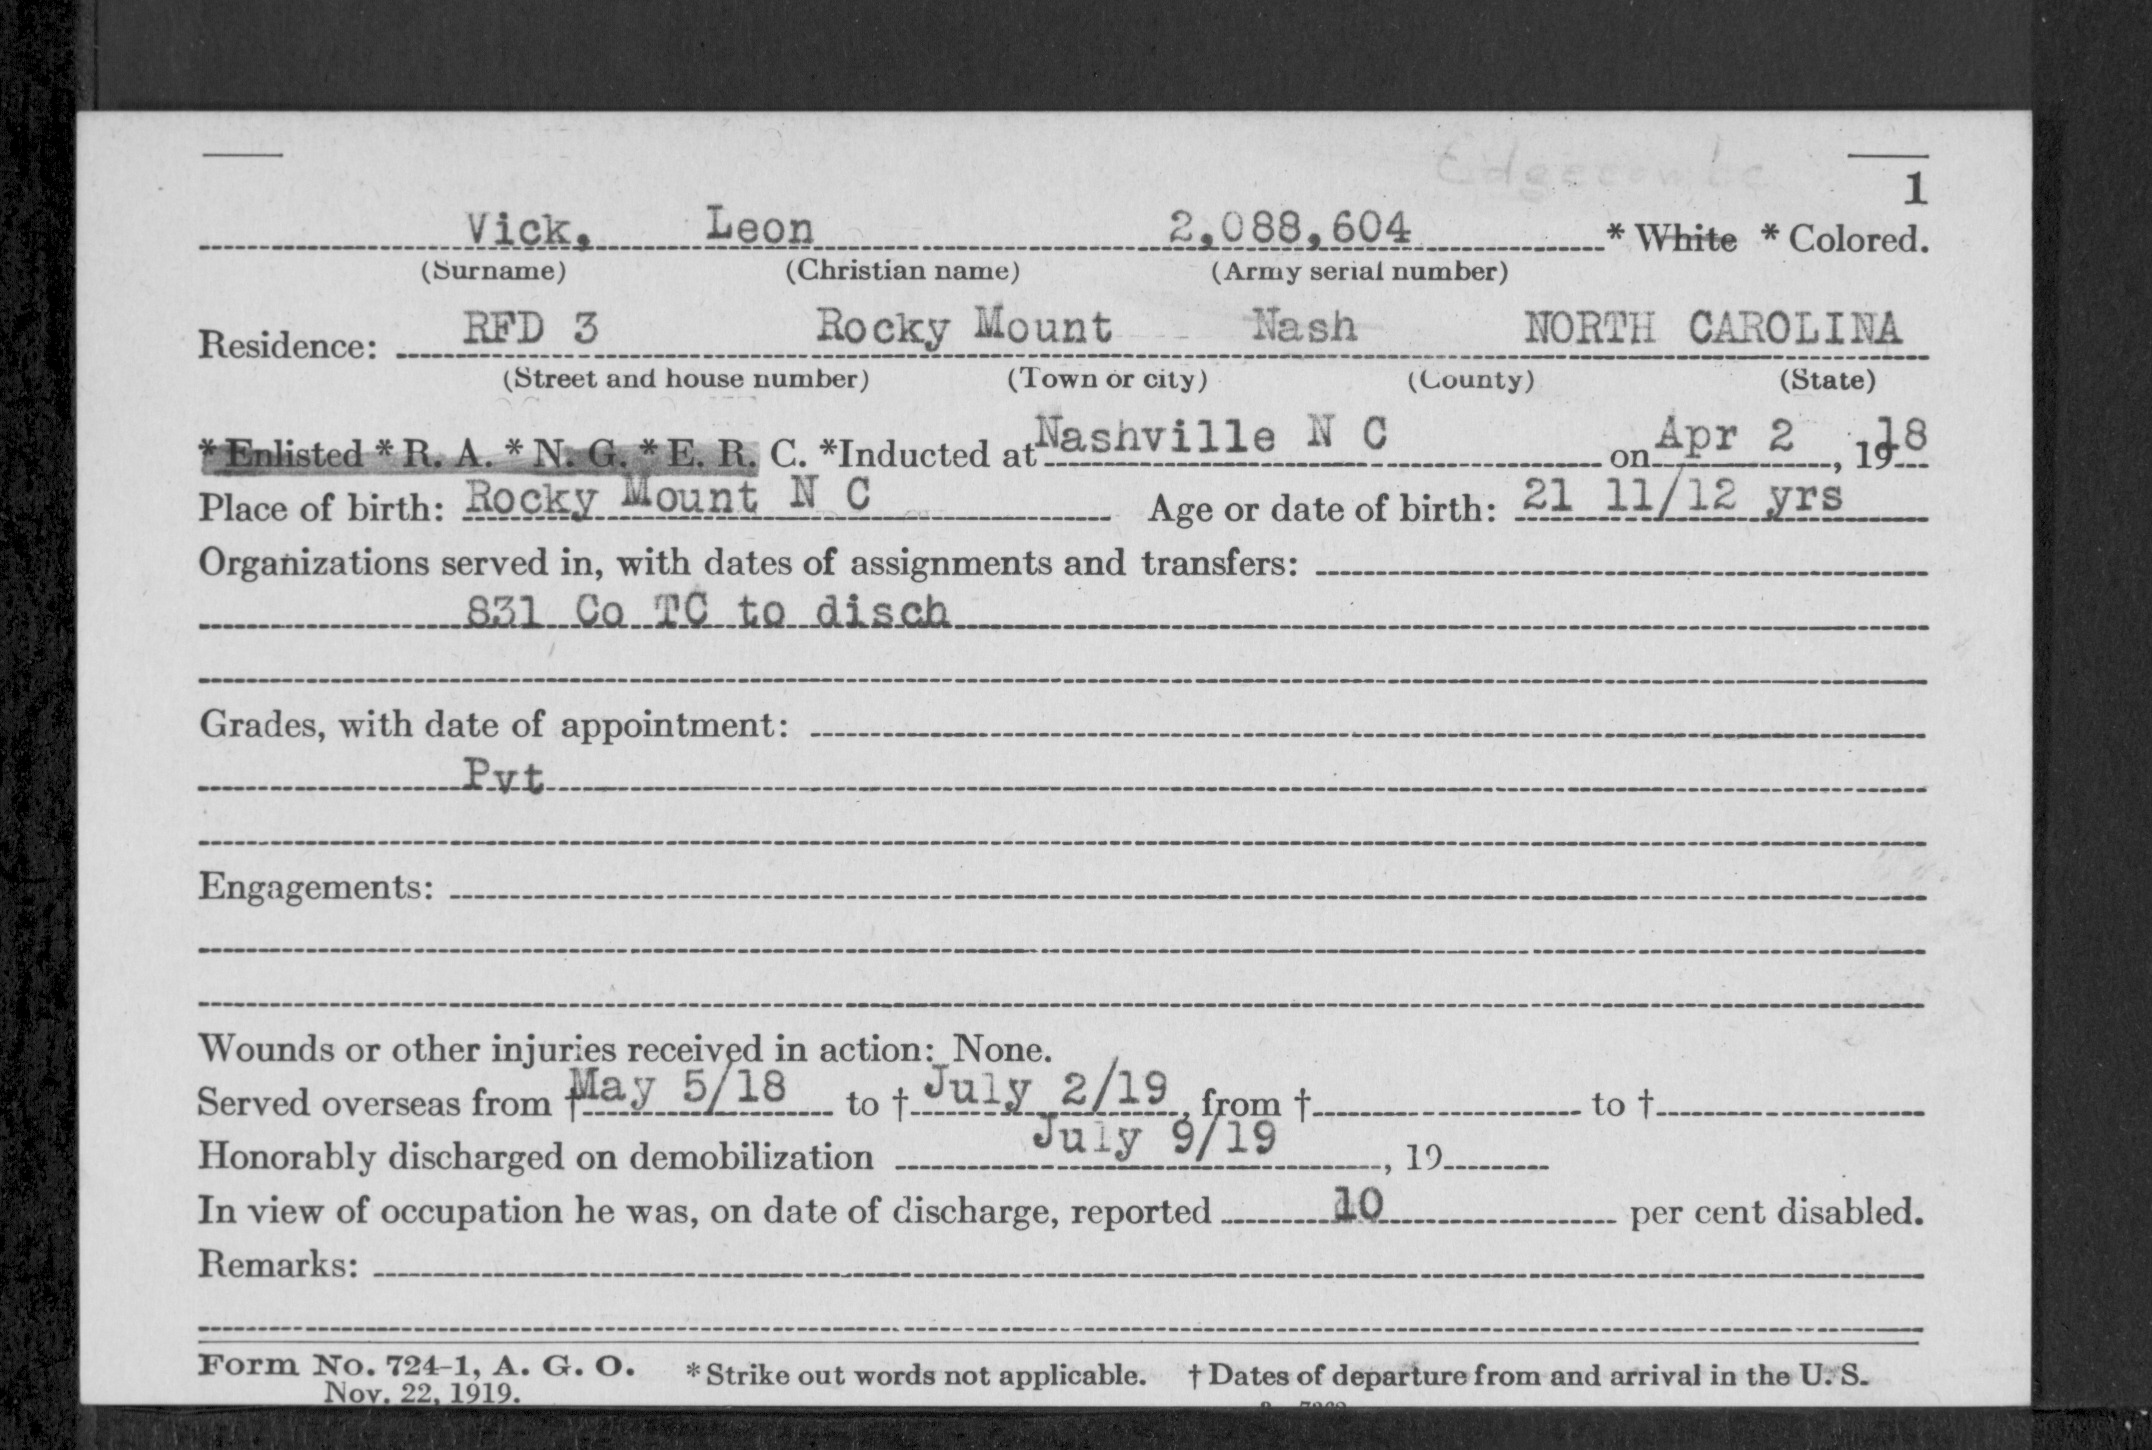 Edgecombe
1
Vick, Leon 2,088,604 * White * Colored.
(Surname) (Christian name) (Army serial number)
Residence: RFD 3 Rocky Mount Nash NORTH CAROLINA
(Street and house number) (Town or city) (County) (State)
* Enlisted * R. A. * N. G. * E. R. C. *Inducted at Nashville N C on Apr 2, 1918
Place of birth: Rocky Mount N C Age or date of birth: 21 11/12 yrs
Organizations served in, with dates of assignments and transfers:
831 Co TC to disch
Grades, with date of appointment:
Pvt
Engagements:
Wounds or other injuries received in action: None.
Served overseas from † May 5/18 to † July 2/19, from † to †
Honorably discharged on demobilization July 9/19, 19
In view of occupation he was, on date of discharge, reported 10 per cent disabled.
Remarks:
Form No. 724-1, A. G. O. * Strike out words not applicable. † Dates of departure from and arrival in the U. S.
Nov. 22, 1919.